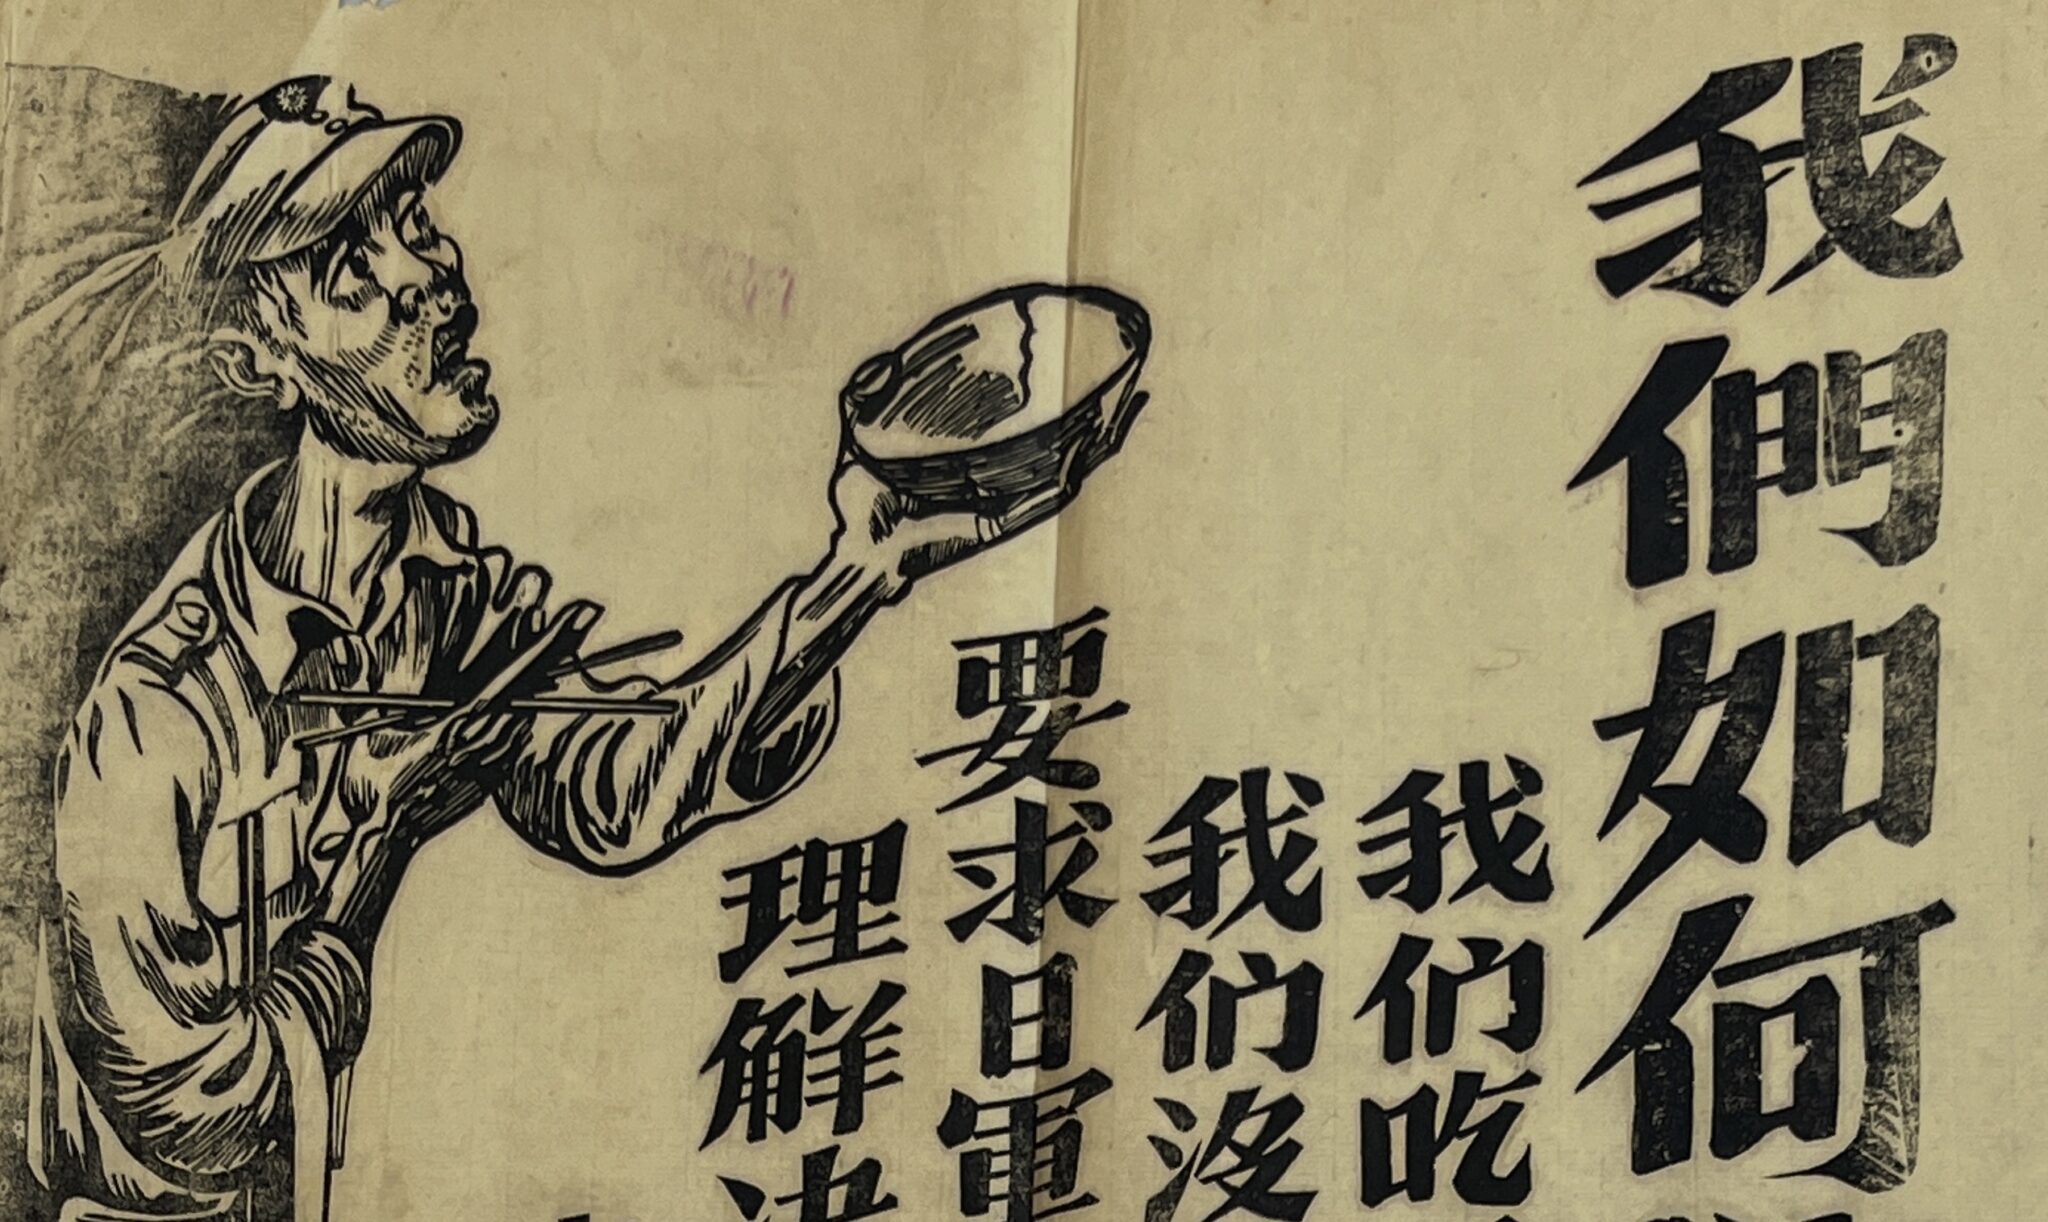 我們如何
我们吃
我们沒
要求日軍
理解决